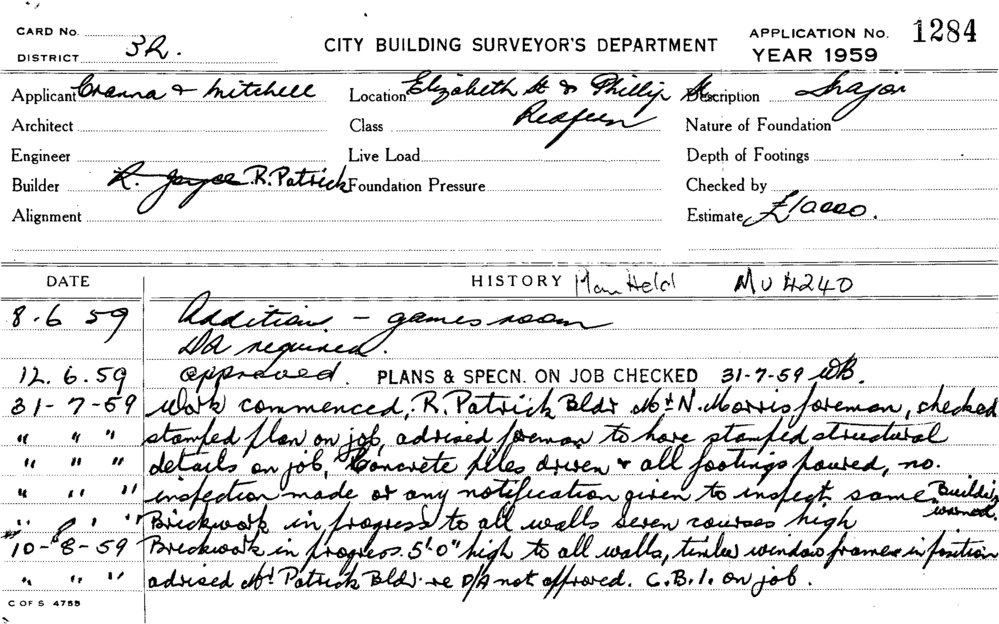 CARD No.
DISTRICT 3R.
CITY BUILDING SURVEYOR'S DEPARTMENT
APPLICATION No. 1284
YEAR 1959
Applicant Cranna & Mitchell Location Elizabeth St & Phillip St Description Major
Architect Class Redfern Nature of Foundation
Engineer Live Load Depth of Footings
Builder R. Joyce R. Patrick Foundation Pressure Checked by
Alignment Estimate £10000.
DATE HISTORY Plan Held MU 4240
8.6 59 Addition - games room
DA required.
12.6.59 approved. PLANS & SPECN. ON JOB CHECKED 31-7-59 WB.
31-7-59 Work commenced, R. Patrick Bldr Mr N. Morris foreman, checked
" " " stamped plan on job, advised foreman to have stamped structural
" " " details on job, Concrete piles driven & all footings poured, no.
" " " inspection made or any notification given to inspect same. Builder warned.
" " " Brickwork in progress to all walls seven courses high
10-8-59 Brickwork in progress. 5'-0" high to all walls, timber window frames in position
" " " advised Mr Patrick Bldr. re D/A not approved. C.B.I. on job.
C OF S 4755